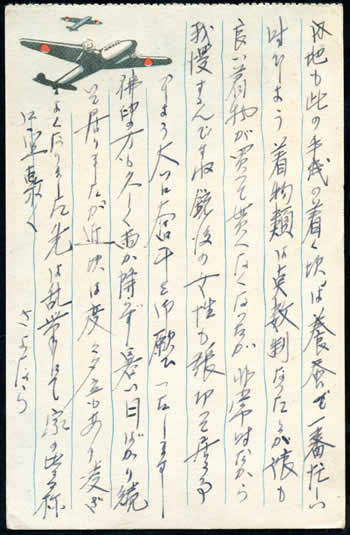 内地も此の手紙の着く頃は養蚕で一番忙しい
時でせう 着物類は点数制になったから娘も
良い着物が買って貰へなくなったが 非常時だから
我慢するんですね 銃後の女性も張切って居る事
でせう 大いに奮斗を御願ひいたします
佛印の方も久しく雨が降らず暑い日ばかり続
いて居りましたが近頃は度々夕立もあり凌ぎ
よくなりました 先は乱筆にて 家の皆様
に宜敷く
さよなら